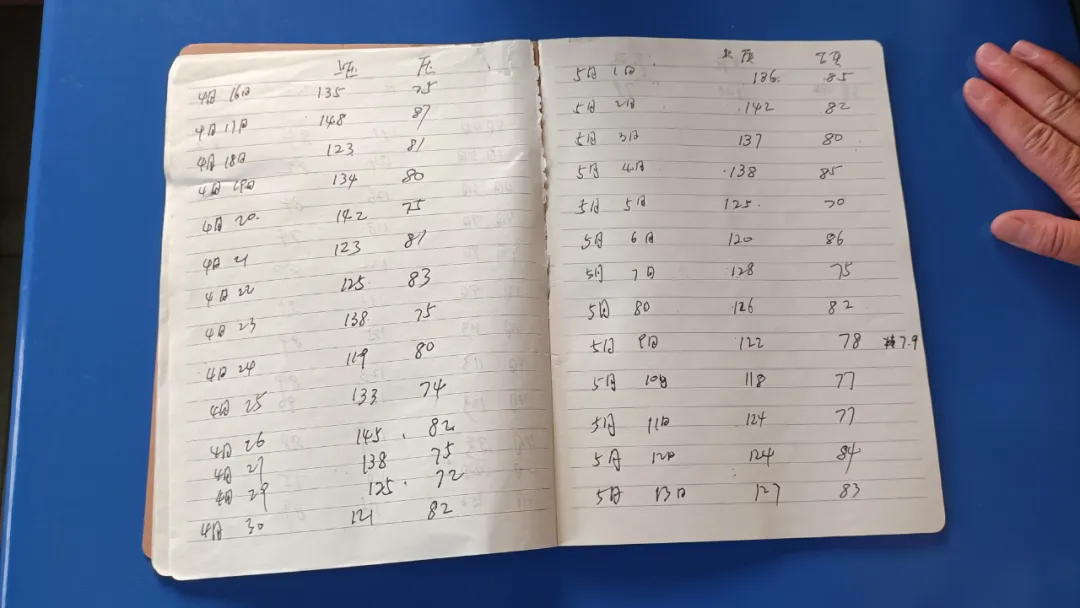 压 压
4月 16日 135 75
4月 17日 148 87
4月 18日 123 81
4月 19日 134 80
4月 20 142 75
4月 21 123 81
4月 22 125 83
4月 23 138 75
4月 24 119 80
4月 25 133 74
4月 26 145 82
4月 27 138 75
4月 29 125 72
4月 30 121 82
压 压
5月 1日 136 85
5月 2日 142 82
5月 3日 137 80
5月 4日 138 85
5月 5日 125 70
5月 6日 120 86
5月 7日 128 75
5月 8日 126 82
5月 9日 122 78 7.9
5月 10日 118 77
5月 11日 124 77
5月 12日 124 84
5月 13日 127 83